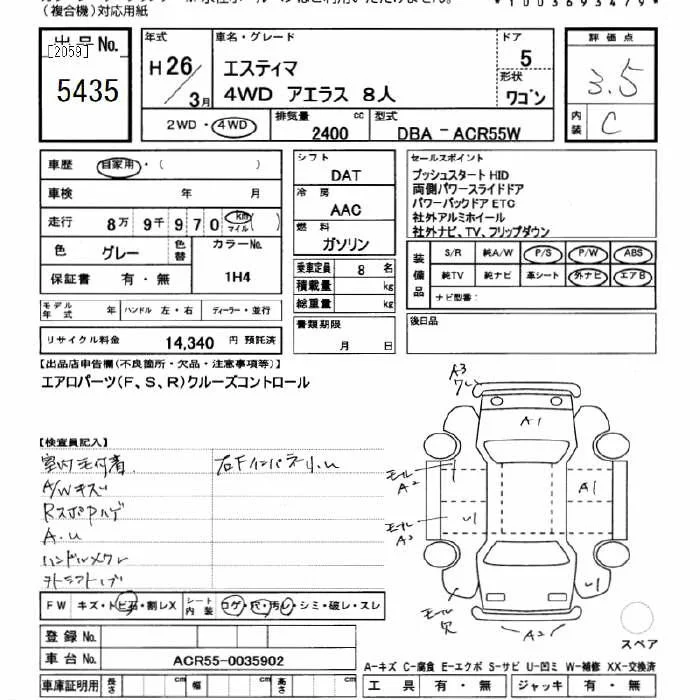 (複合機)対応用紙
*1003693479*
出品No.
[2059]
5435
年式
H26/3月
車名・グレード
エスティマ
4WD アエラス 8人
ドア
5
形状
ワゴン
評価点
3.5
内装
C
2WD・4WD
排気量
2400 cc
型式
DBA - ACR55W
車歴 自家用・( )
車検 年 月
走行 8万 9千 9 7 0 km マイル( )
色 グレー 色替
カラーNo.
1H4
保証書 有・無
モデル年式 年
ハンドル 左・右
ディーラー・並行
リサイクル料金 14,340 円 預託済
シフト
DAT
冷房
AAC
燃料
ガソリン
乗車定員 8 名
積載量 kg
総重量 kg
書類期限
月 日
セールスポイント
プッシュスタート HID
両側パワースライドドア
パワーバックドア ETC
社外アルミホイール
社外ナビ、TV、フリップダウン
装備品
S/R 純A/W P/S P/W ABS
純TV 純ナビ 革シート 外ナビ エアB
ナビ型番:
後日品
【出品店申告欄(不良箇所・欠品・注意事項等)】
エアロパーツ(F、S、R)クルーズコントロール
【検査員記入】
室内毛付着
A/Wキズ
RスポPハゲ
A.U
ハンドルスレ
右Fインパネ小U
FW キズ・トビ石・割レX
シート内装 コゲ・穴・汚レ・シミ・破レ・スレ
A3
ワレ
A1
モール
A2
モール
A3
U1
A1
U1
モール
欠
A2
スペア
登録No.
車台No. ACR55-0035902
A-キズ C-腐食 E-エクボ S-サビ U-凹ミ W-補修 XX-交換済
車庫証明用 長さ cm 幅 cm 高さ cm
工具 有・無 ジャッキ 有・無